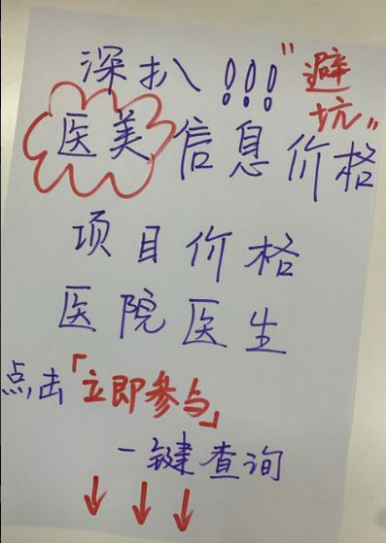 深扒!!!"避坑"
医美信息价格
项目价格
医院医生
点击「立即参与」
一键查询